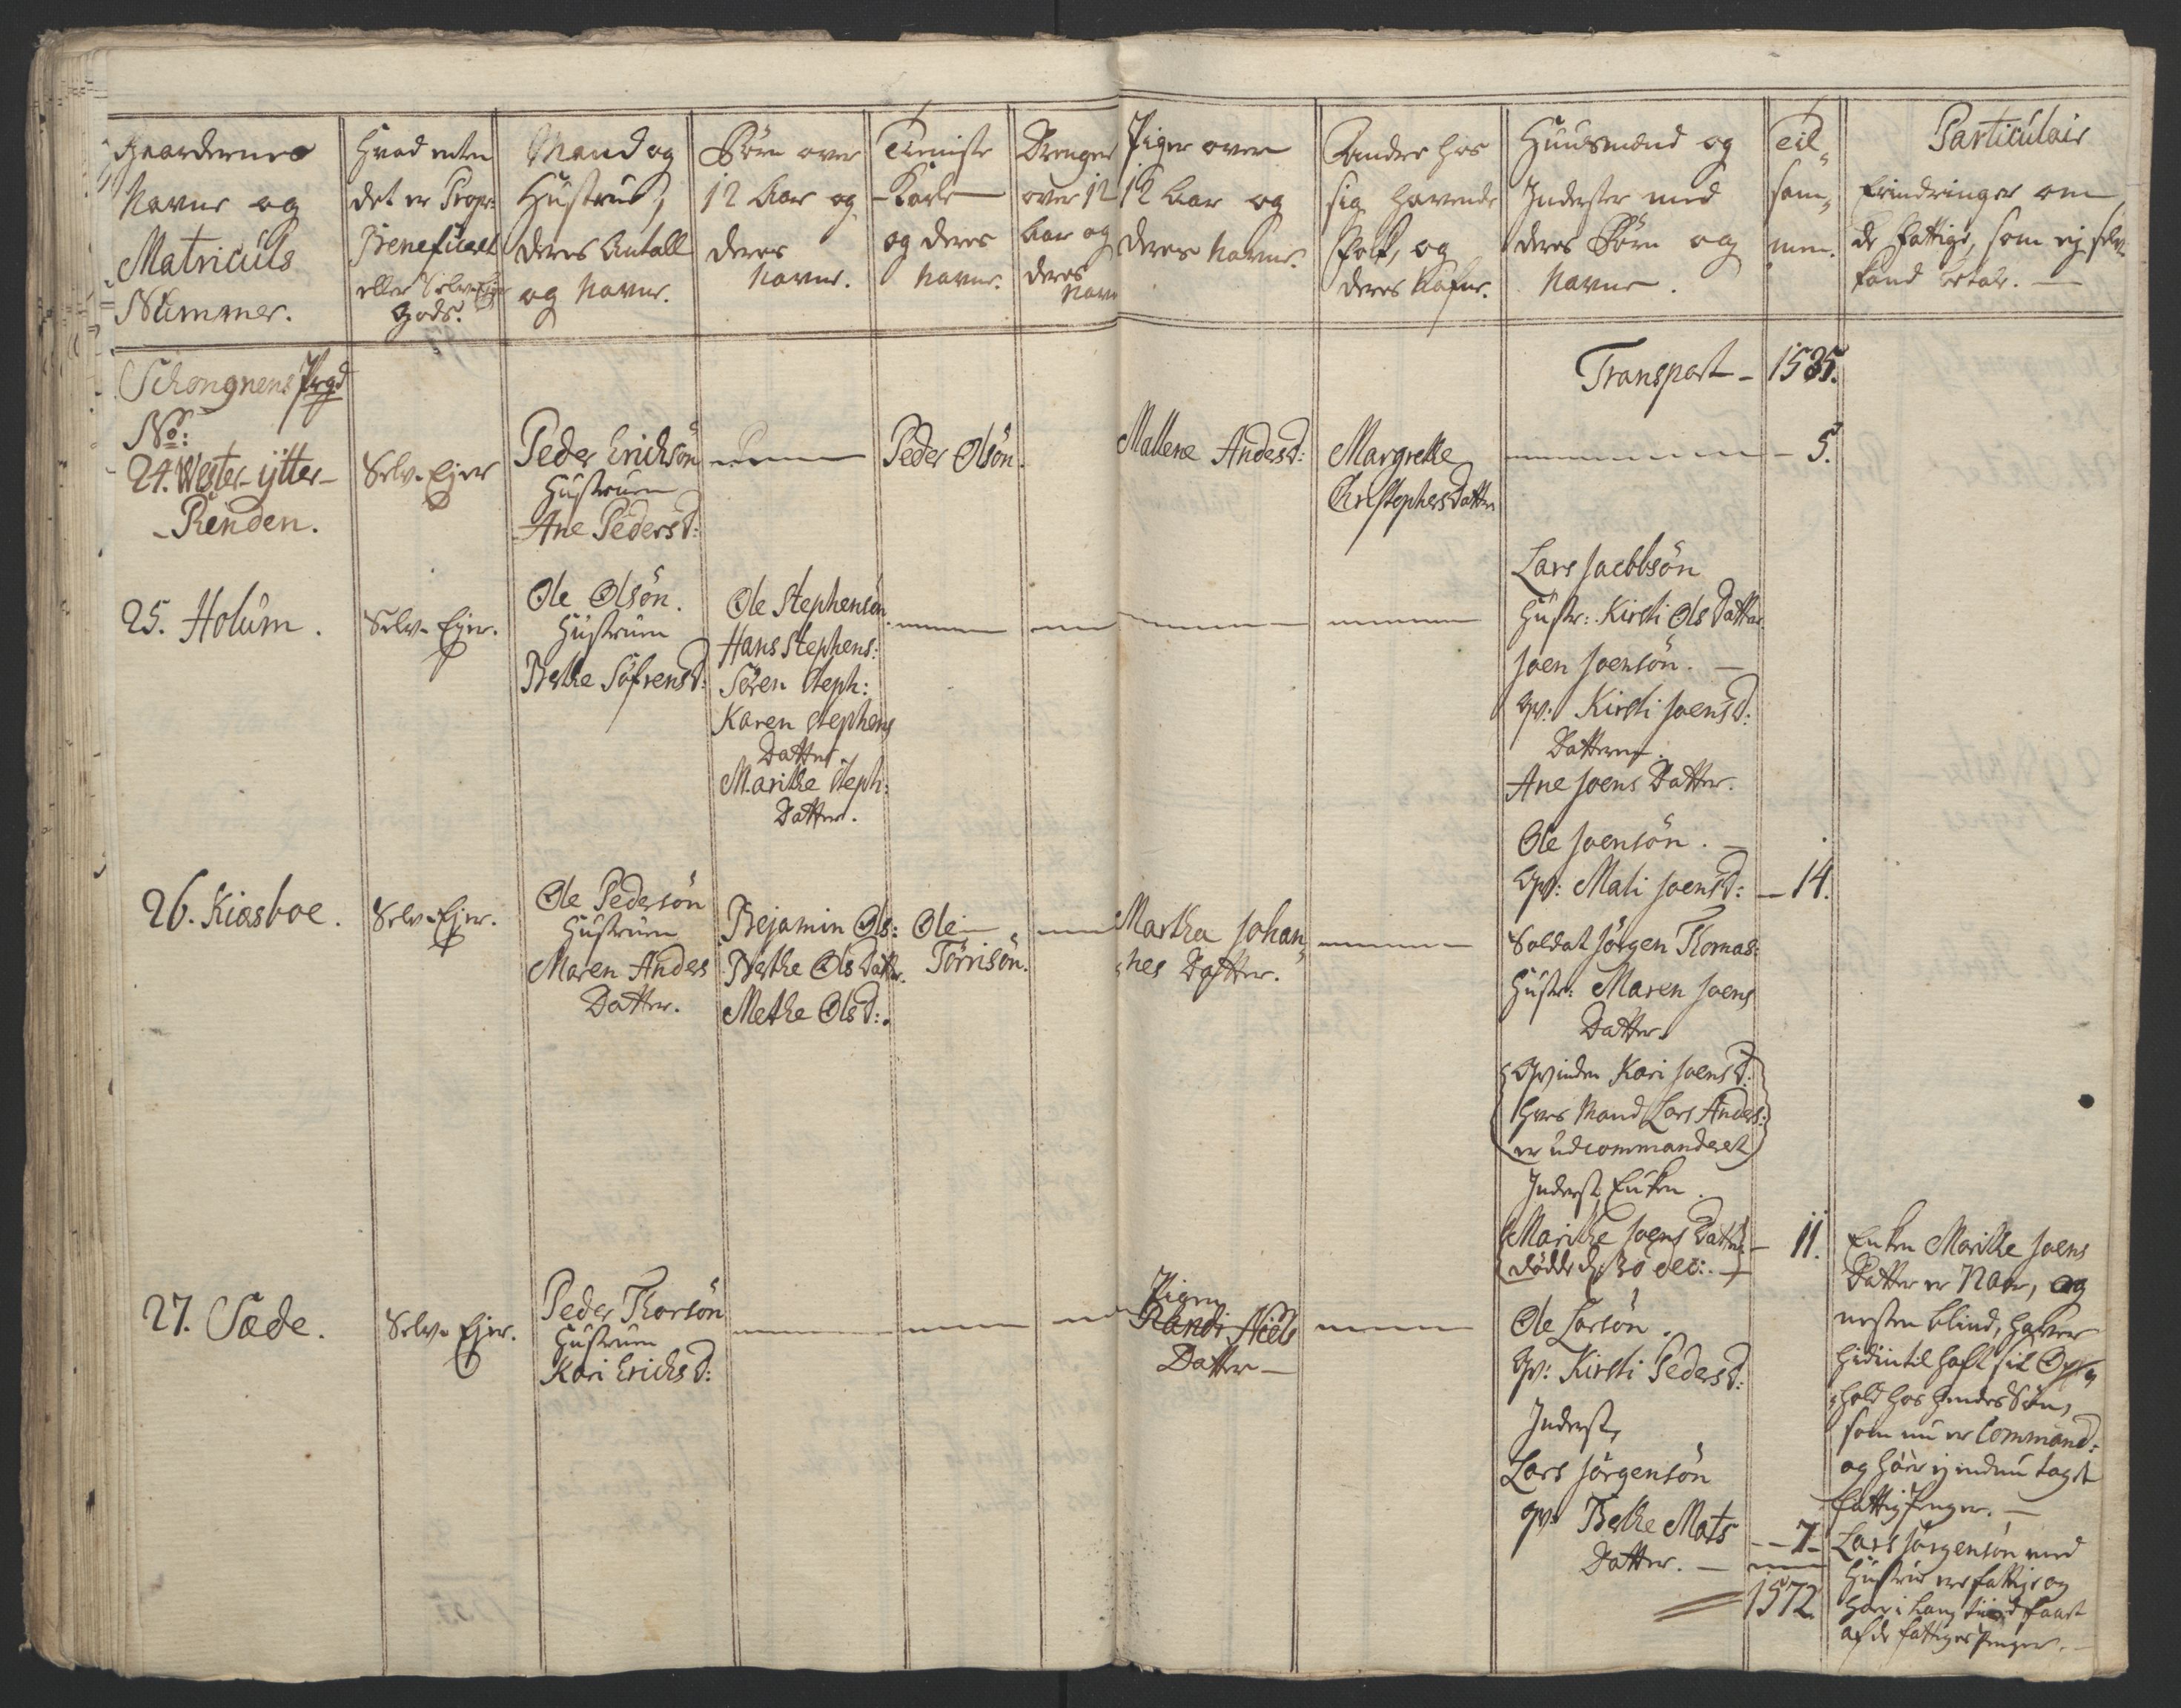 Gaardernes
Navne og
Matriculs
Nummer.
Hvad enten
det er Propr:
Beneficeret
eller Selv-Ejer
Gods.
Mand og
Hustrue,
deres Antall
og Navne.
Børn over
12 Aar og
deres
Navne.
Tieniste
Karle
og deres
Navne.
Drenge
over 12
Aar og
deres
Navne
Piger over
12 Aar og
deres Navne.
Andre hos
sig havende
Folk, og
deres Nafne.
Huusmænd og
Inderster med
deres Børn og
Navne.
Til„
sam„
men.
Particulair
Erindringer om
de fattige, som ej selv
kand betale. —
Schongnens Prgd
Transport - 1535.
No:
24. Wester-ÿtter-
Renden.
Selv-Ejer
Peder Erichsön
Hustruen
Ane Pedersd:
Peder Olsön.
Mallene Andersd:
Margrethe
Christophersdatter
- 5.
25. Holum.
Selv-Ejer.
Ole Olsön.
Hustruen
Berthe Söfrensd:
Ole Stephensön.
Hans Stephens:
Sören Steph:
Karen Stephens
Datter.
Marithe Steph:
Datter.
Lars Jacobsön
Hustr: Kirsti Olsdatter
Joen Joensön. —
Qv: Kirsti Joensd:
Datteren.
Ane Joens Datter.
Ole Joensön. —
Qv: Mali Joensd: — 14.
26. Kiæsboe.
Selv-Ejer.
Ole Pedersön
Hustruen
Maren Anders
Datter.
Bejamin Ols:
Berthe Olsdatter.
Methe Olsd:
Ole
Törrisön.
Martha Johan„
nes Datter.
Soldat Jörgen Thomas:
Hustr: Maren Joens
Datter.
(Qvinden Kari Joensd:
hvis Mand Lars Anders:
er udcommanderet)
Inderst Enken.
(Marithe Joens Datter
döde d. 30 dec: —) — 11.
Enken Marithe Joens
Datter er 72 Aar, og
nesten blind, haver
hidintil haft sit Op„
hold hos hendes Sön,
som nu er Command:
og har ej endnu taget
fattig Penger. —
27. Sæde.
Selv-Ejer.
Peder Thorsön
Hustruen
Kari Erichsd:
Pigen
Randi Niels
Datter —
Ole Larsön.
Qv: Kirsti Pedersd:
Inderst,
Lars Jörgensön
Qv: Berthe Mats
Datter. — - - 7 -
Lars Jörgensön med
Hustrue ere fattige og
har i lang tiid faaet
af de fattiges Penger. —
1572.